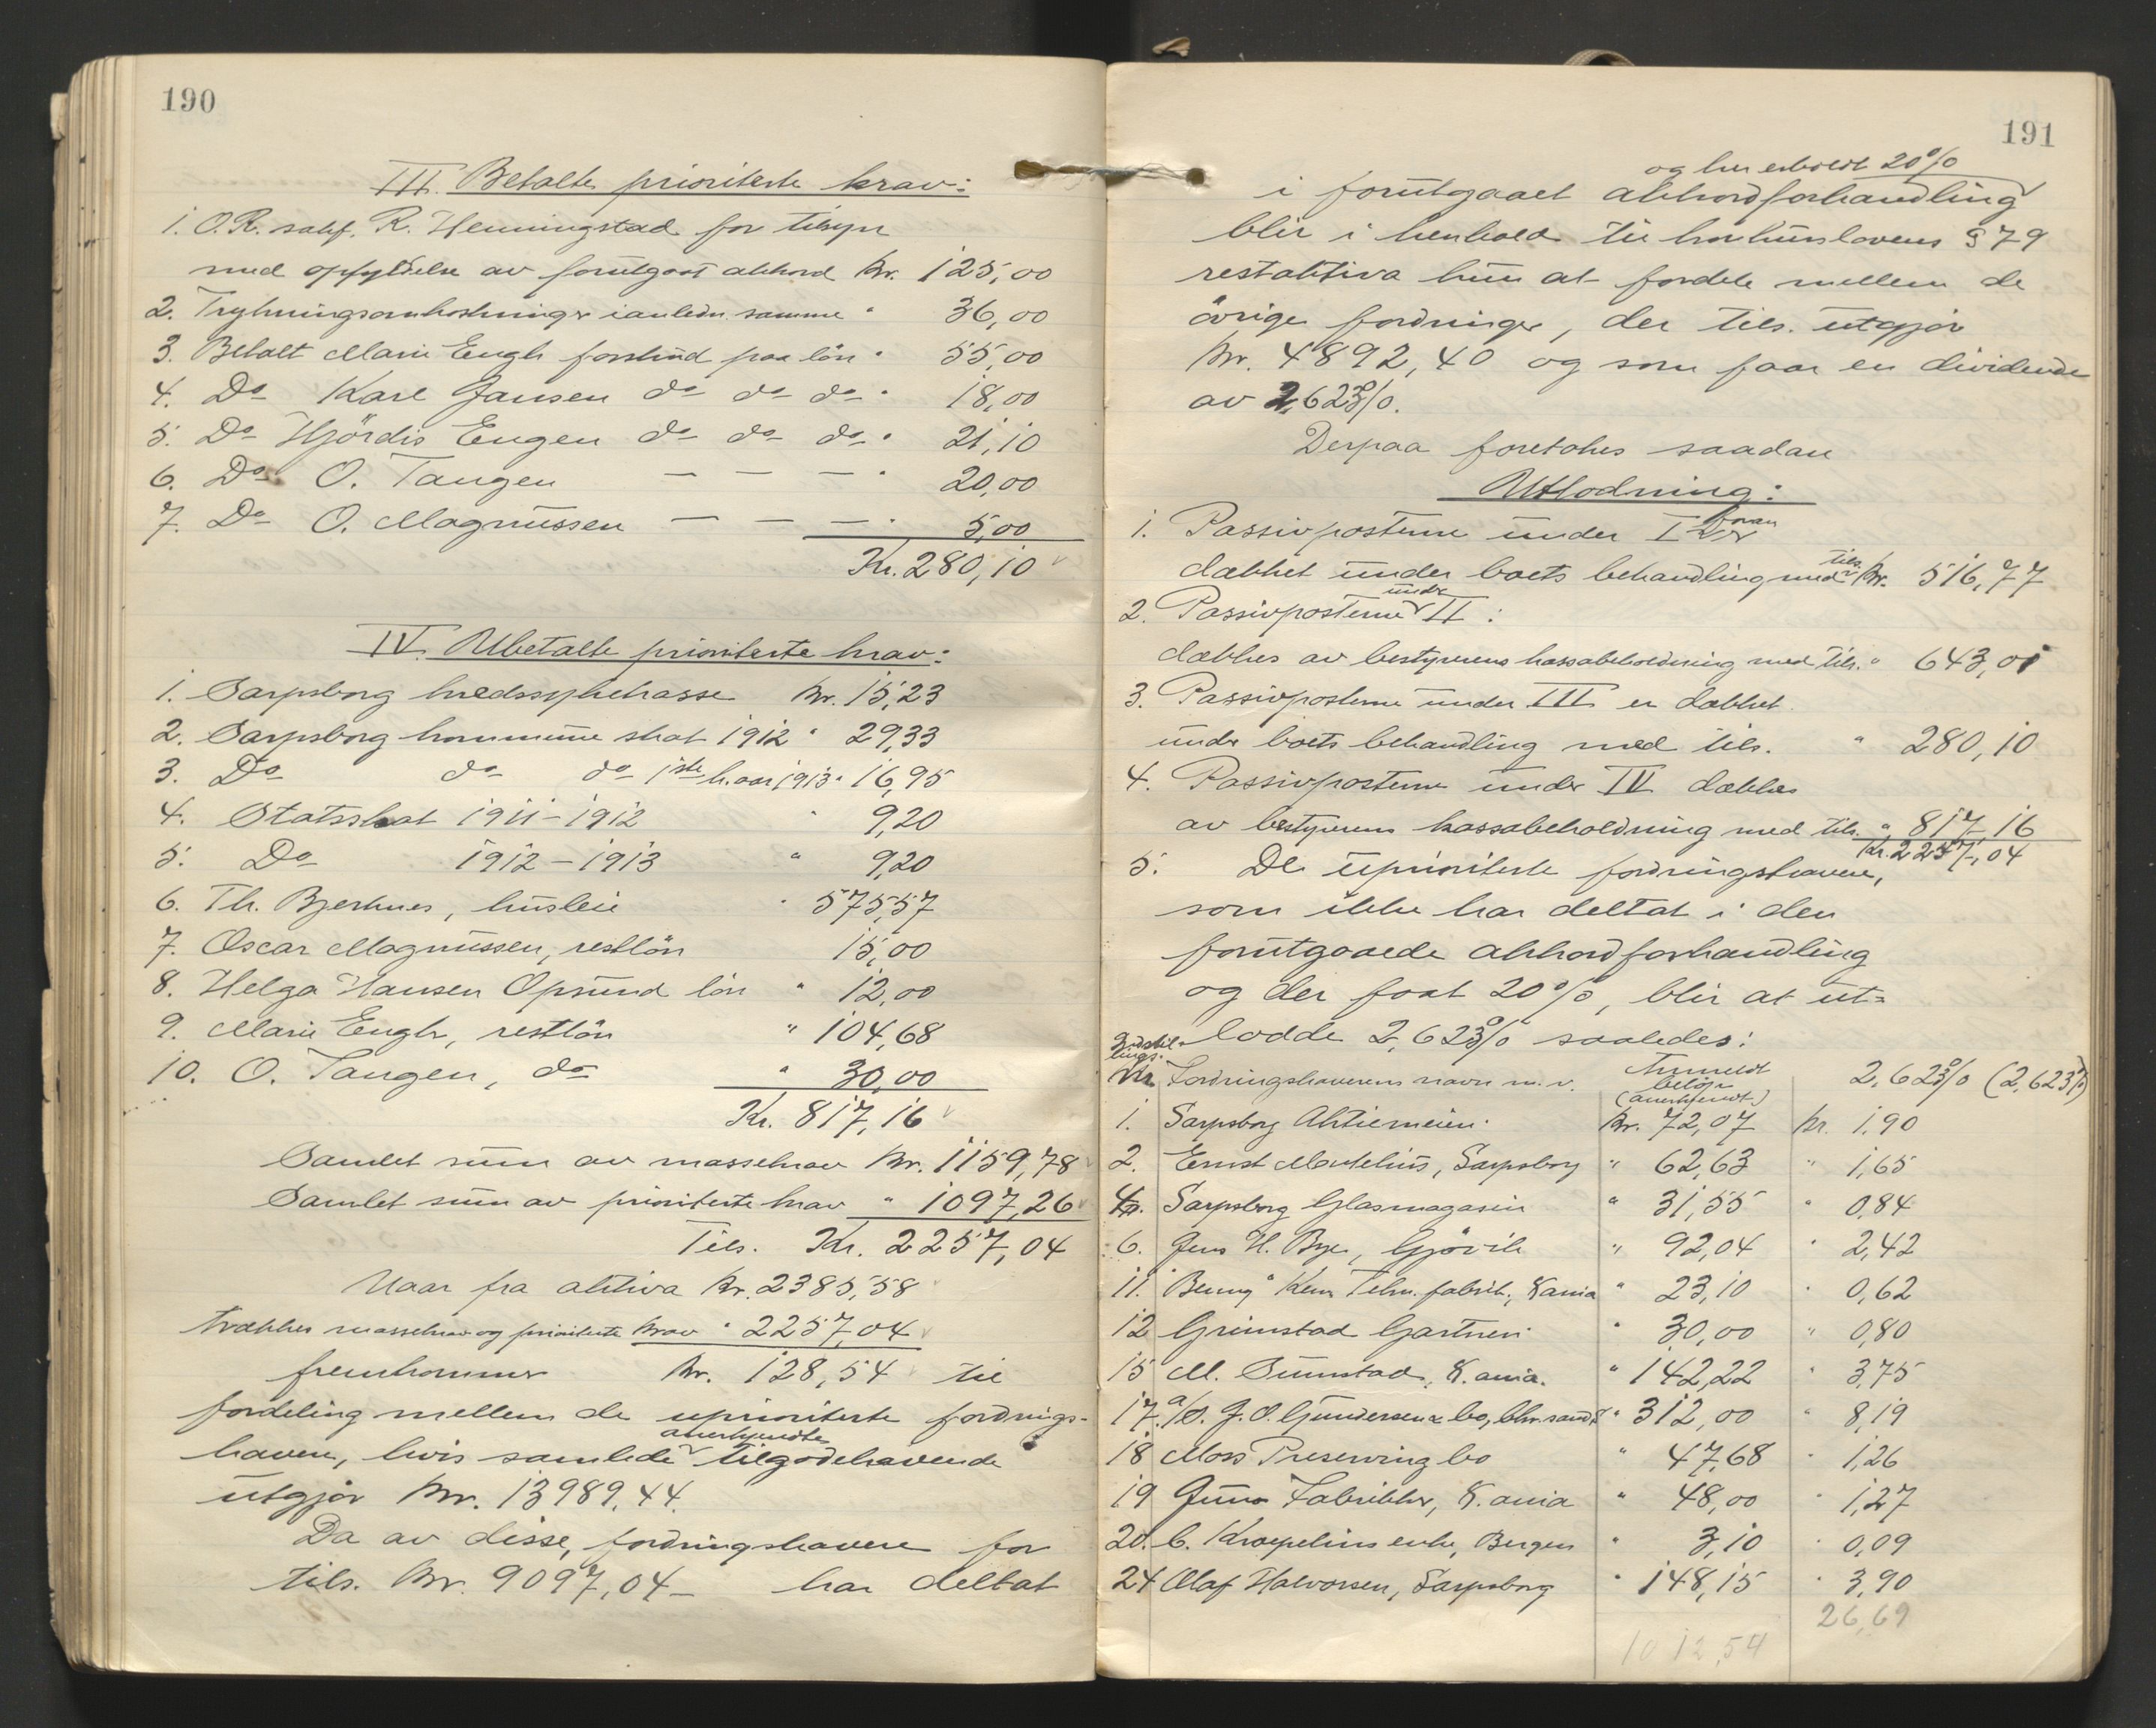 190
III. Betalte prioriterte krav:
1. O.R. sakf. R. Henningstad for tilsyn
med opfyldelse av forutgaat akkord Kr. 125,00
2. Trykningsomkostninger i anledn. samme " 36,00
3. Betalt Marie Engh forskud paa løn " 55,00
4. Do Karl Jansen do do do " 18,00
5. Do Hjördis Engen do do do " 21,10
6. Do O. Tangen — — — " 20,00
7. Do O. Magnussen — — — " 5,00
Kr. 280,10
IV. Ubetalte prioriterte krav:
1. Sarpsborg kredssykekasse Kr. 15,23
2. Sarpsborg kommune skat 1912 " 29,33
3. Do do do 1ste h.aar 1913 " 16,95
4. Statsskat 1911-1912 " 9,20
5. Do 1912-1913 " 9,20
6. Th. Bjerknes, husleie " 575,57
7. Oscar Magnussen, restlön 15,00
8. Helga Hansen Opsund lön " 12,00
9. Marie Engh, restlön " 104,68
10. O. Tangen, do " 30,00
Kr. 817,16
Samlet sum av massekrav Kr. 1159,78
Samlet sum av prioriterte krav " 1097,26
Tils. Kr. 2257,04
Naar fra aktiva Kr. 2385,58
trækkes massekrav og prioriterte krav " 2257,04
fremkommer Kr. 128,54 til
fordeling mellem de uprioriterte fordrings-
havere, hvis samlede anerkjendte tilgodehavende
utgjör Kr. 13989,44.
Da av disse, fordringshavere for
tils. Kr. 9097,04 - har deltat
191
og har erholdt 20%
i forutgaaet akkordforhandling
blir i henhold til konkurslovens § 79
restaktiva kun at fordele mellem de
övrige fordringer, der tils. utgjör
Kr. 4892,40 og som faar en dividende
av 2,623%.
Derpaa foretokes saadan
Utlodning:
1. Passivposterne under I er foran
dækket under boets behandling med tils. Kr. 516,77
2. Passivposterne under II:
dækkes av bestyrerens kassabeholdning med tils. " 643,01
3. Passivposterne under III er dækket
under boets behandling med tils. " 280,10
4. Passivposterne under IV dækkes
av bestyrerens kassabeholdning med tils. " 817,16
Kr. 2257,04
5. De uprioriterte fordringshavere,
som ikke har deltat i den
forutgaaede akkordforhandling
og der faat 20%, blir at ut=
lodde 2,623% saaledes:
Nr. Fordringshaverens navn m.v. Anmeldt beløp (anerkjendt) 2,623% (2,623%)
1. Sarpsborg Aktiemeieri Kr. 72,07 Kr. 1,90
2. Ernst Martelius, Sarpsborg " 62,63 " 1,65
4. Sarpsborg Glasmagasin " 31,55 " 0,84
6. Jens H. Bye, Gjövik " 92,04 " 2,42
11. "Benny" Kem. Tekn. fabrik., K.ania " 23,10 " 0,62
12 Grimstad Gartneri " 30,00 " 0,80
15 M. Sunnstad, K.ania. " 142,22 " 3,75
17. a/s. J.O. Gundersen & Co, Chr.sand S " 312,00 " 8,19
18 Moss Preserving Co " 47,68 " 1,26
19 Juno Fabrikker, K.ania " 48,00 " 1,27
20. C. Kraepelins enke, Bergen " 3,10 " 0,09
24 Olaf Halvorsen, Sarpsborg " 148,15 " 3,90
26,69
1012,54